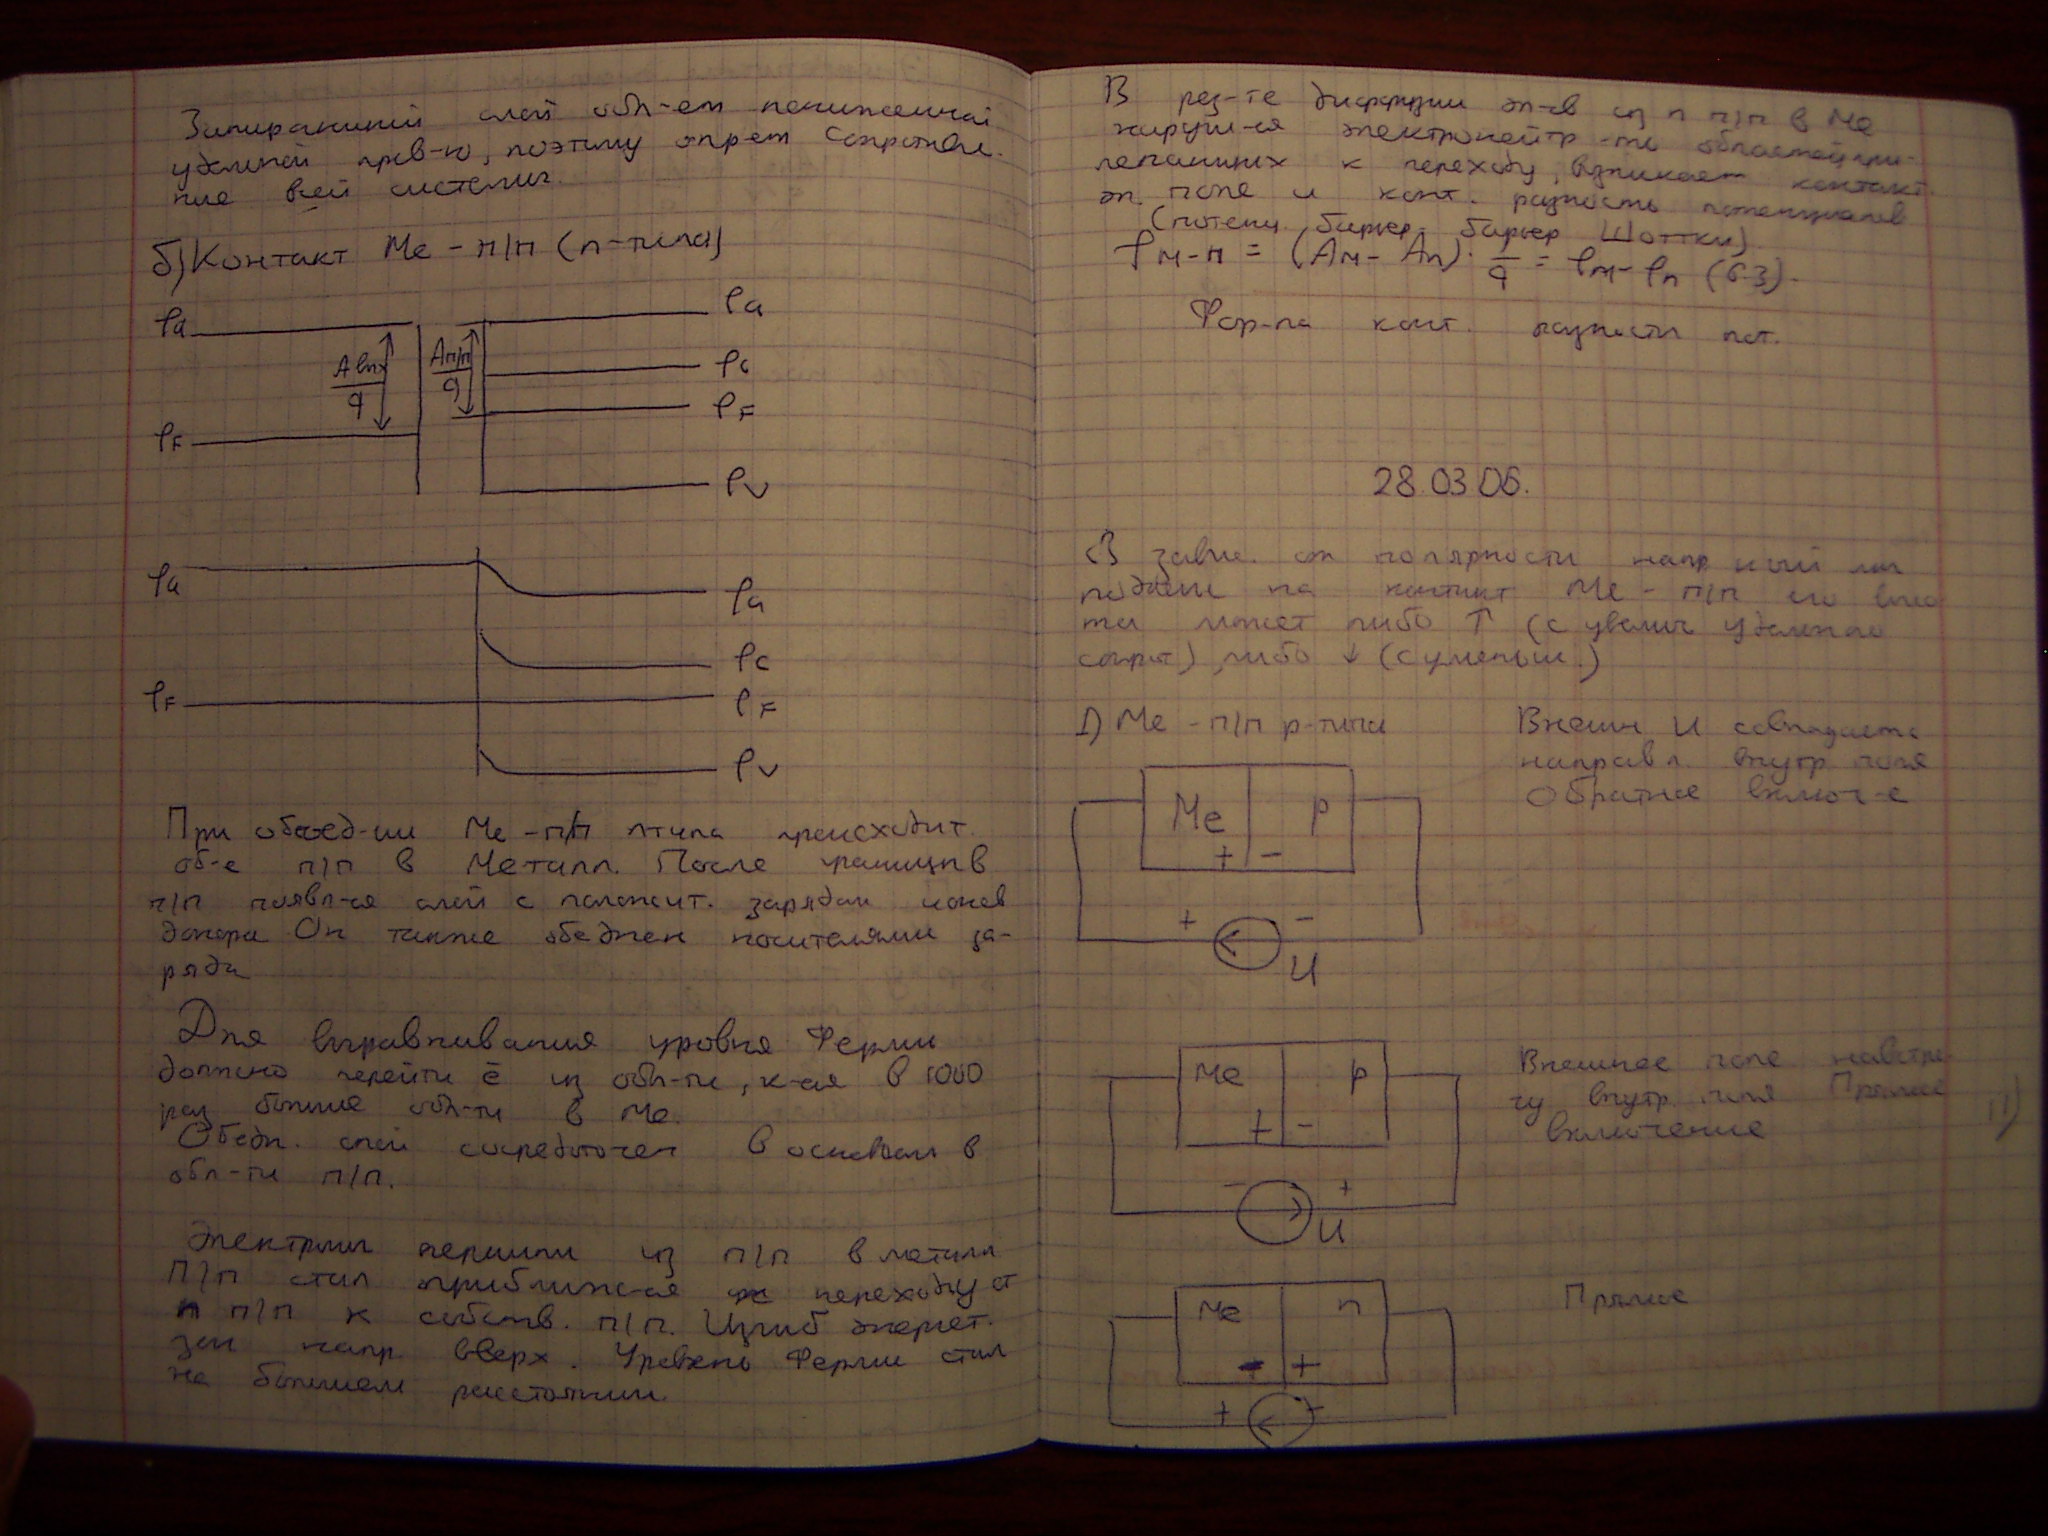 Запирающий слой обл-ет пониженной
удельной пров-ю, поэтому опр-ет сопротивле-
ние всей системы.
б) Контакт Ме - п/п (n-типа)
φa
φa
Aвых/q
Aп/п/q
φc
φF
φF
φv
φa
φa
φc
φF
φF
φv
При объед-ии Ме-п/п n типа происходит
об-е п/п в Металл. После границы в
п/п появл-ся слой с положит. зарядом ионов
донора Он также обеднен носителями за-
ряда
Для выравнивания уровня Ферми
должно перейти ē из обл-ти, к-ая в 1000
раз больше обл-ти в Ме.
Обедн. слой сосредоточен в основном в
обл-ти п/п.
Электроны перешли из п/п в металл
П/п стал приближ-ся к переходу от
n п/п к собств. п/п. Изгиб энергет.
зон напр. вверх. Уровень Ферми стал
на большем расстоянии.
В рез-те диффузии эл-ов из n п/п в Ме
наруш-ся электронейтр-ть областей при-
легающих к переходу, возникает контакт.
эл. поле и конт. разность потенциалов
(потенц. барьер, барьер Шоттки).
φм-п = (Aм - Aп) · 1/q = φм - φп (6.3).
Фор-ла конт. разности пот.
28.03.06.
В завис. от полярности напр
подан на контакт Ме - п/п его
может либо ↑ (с увелич удельного
сопрот), либо ↓ (с уменьш.)
1) Ме - п/п p-типа
Внешн U совпадает с
направл. внутр. поля
Обратное включ-е
Me p
+ -
+ -
U
Внешнее поле навстре-
чу внутр. поля Прямое
включение
Me p
+ -
- +
U
Прямое
Me n
- +
+ -